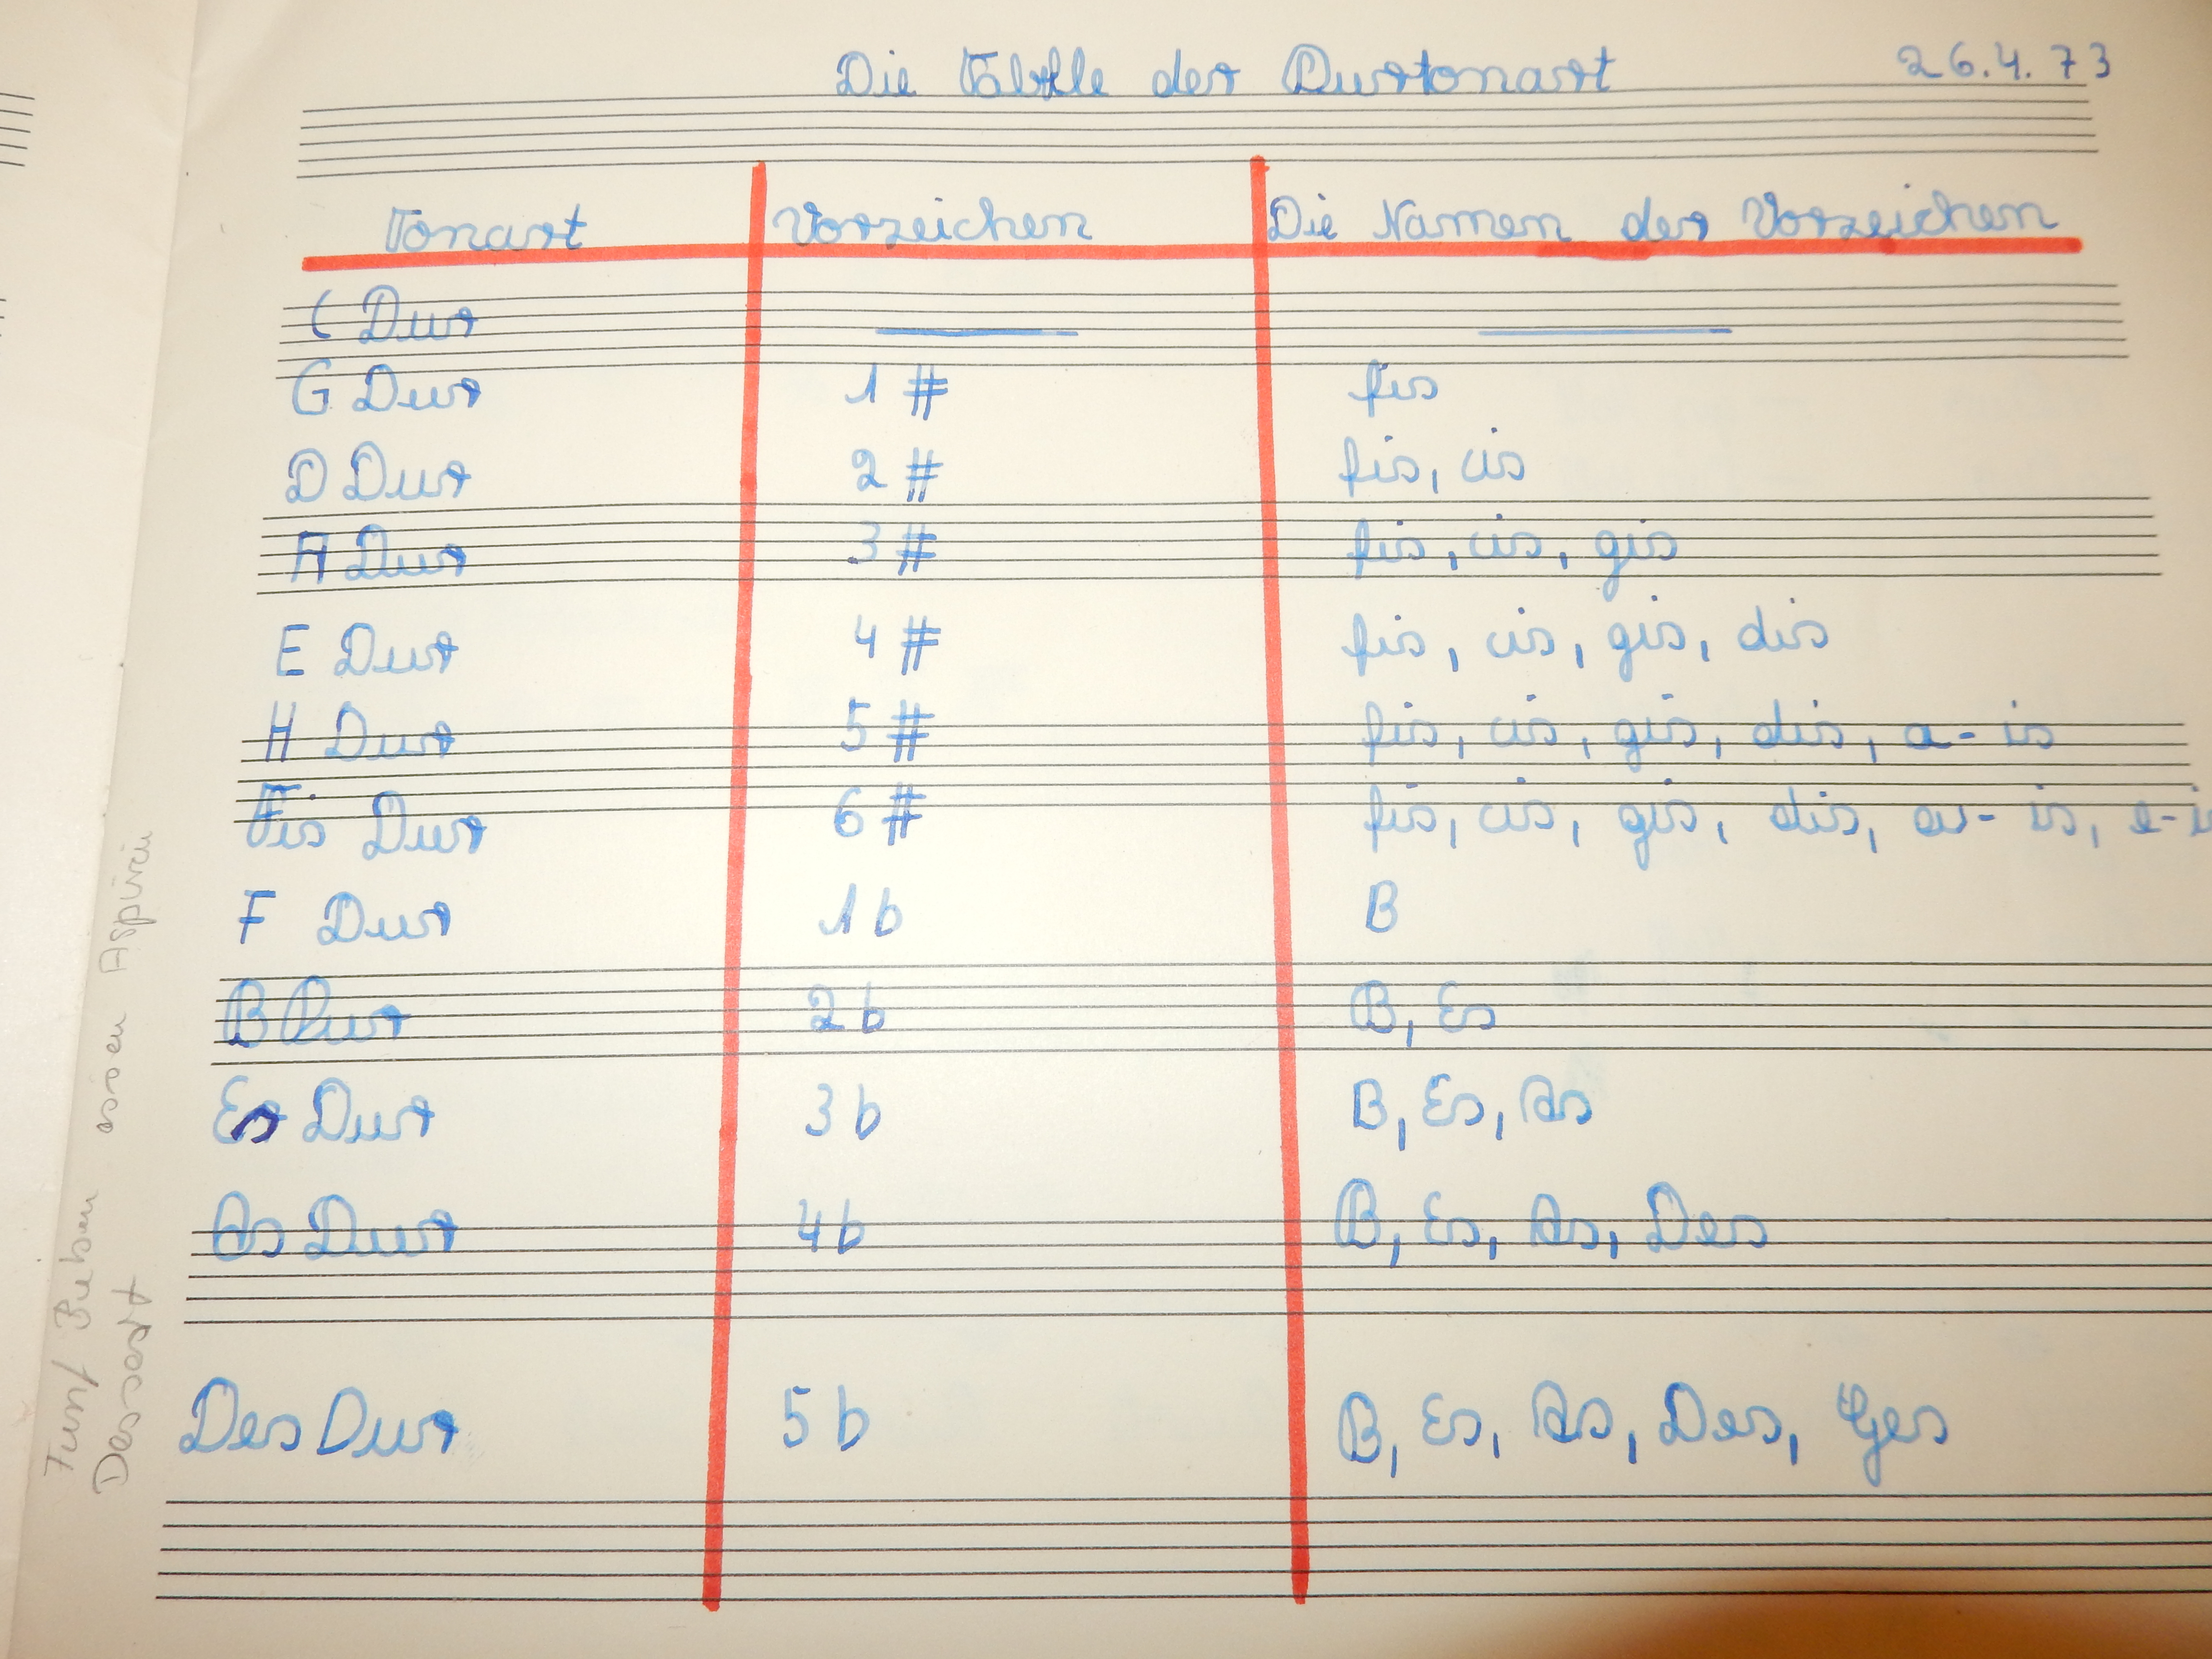 Die Tabelle der Durtonart 26.4.73
Tonart Vorzeichen Die Namen der Vorzeichen
C Dur
G Dur 1 # fis
D Dur 2 # fis, cis
A Dur 3 # fis, cis, gis
E Dur 4 # fis, cis, gis, dis
H Dur 5 # fis, cis, gis, dis, a-is
Fis Dur 6 # fis, cis, gis, dis, a-is, e-is
F Dur 1 b B
B Dur 2 b B, Es
Es Dur 3 b B, Es, As
As Dur 4 b B, Es, As, Des
Des Dur 5 b B, Es, As, Des, Ges
Fünf Buben essen Aspirin
Dessert